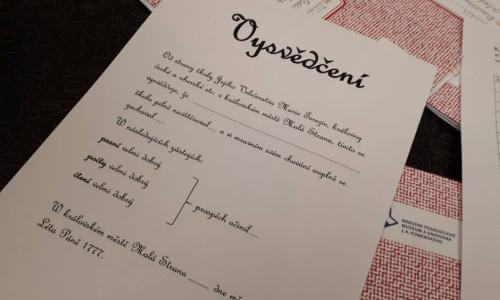 Vysvědčení
Od strany školy Jejího Veličenstva Marie Terezie, královny
české a uherské etc. v královském městě Malá Strana, tímto se
vysvědčuje, že
školu pilně navštěvoval... a v mravním svém chování úplně se
zachoval...
V následujících zástojích:
psaní velmi dobrý
počty velmi dobrý
čtení velmi dobrý
prospěch učinil...
V královském městě Malá Strana dne
Léta Páně 1777.
NÁRODNÍ PEDAGOGICKÉ
MUZEUM & KNIHOVNA
J. A. KOMENSKÉHO